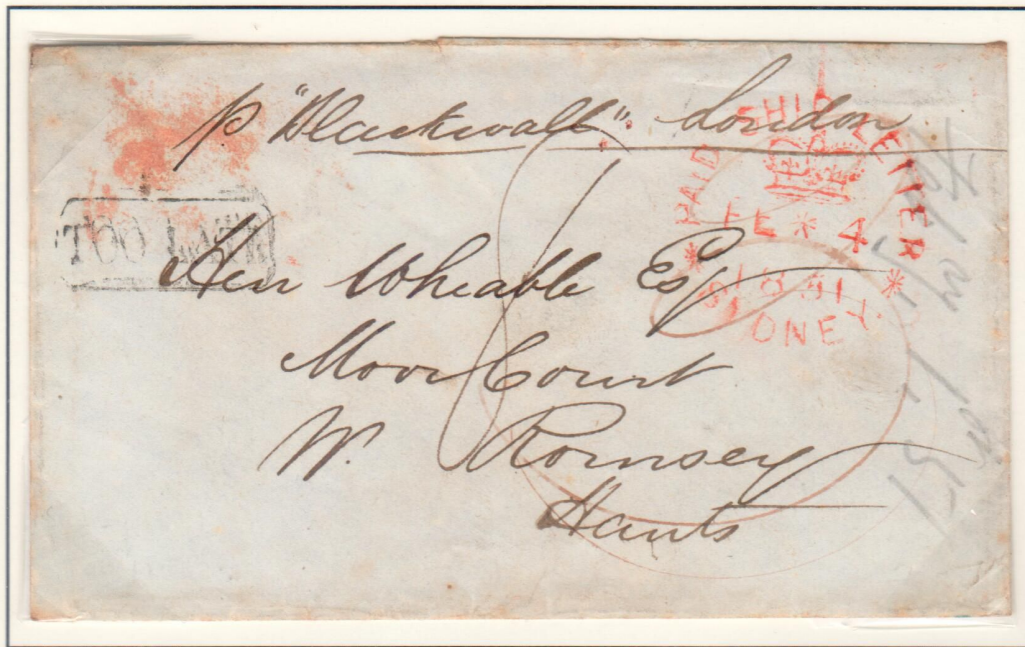 p "Blackwall" London
PAID SHIP LETTER
FE * 4
* 1851 *
SYDNEY
TOO LATE
Hen Wheable Esq
Moor Court
W. Romsey
Hants